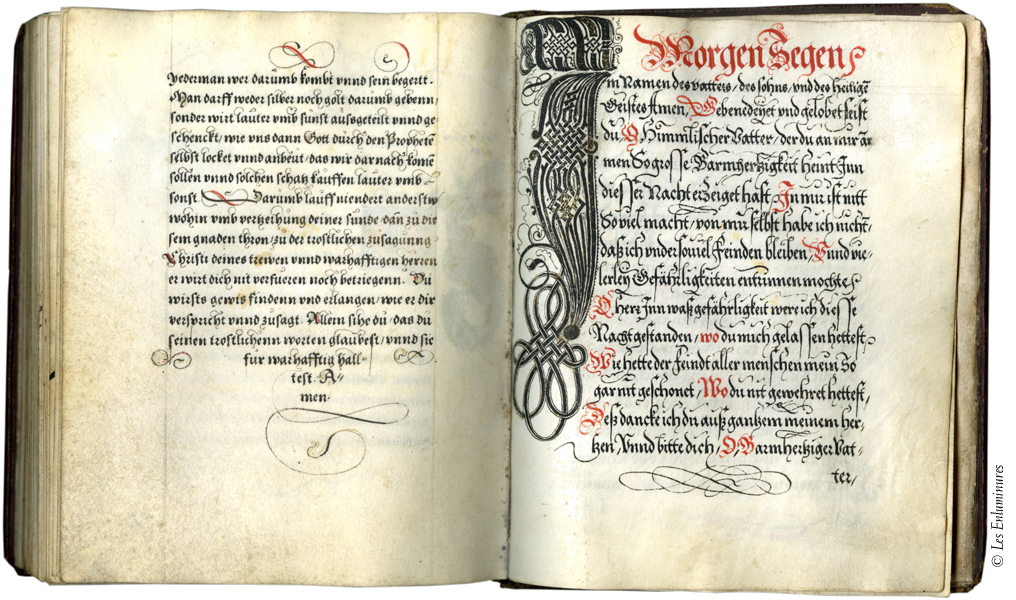 Yederman wer darumb kombt vnnd sein begertt.
Man darff weder silber noch golt darumb gebenn,
sonder wirt lauter vmb sunst ausgeteilt vnnd ge
schenckt, wie vns dann Gott durch den Prophetē
selbst locket vnnd anbeut, das wir darnach komē
sollen vnnd solchen schatz kauffen lauter vmb
sonst. Darumb lauff niendert anderstw
wohin vmb vertzeihung deiner sunde, dan zu die
sem gnaden thron, zu der trostlichen zusagunng
Christi deines trewen vnnd warhafftigen herren
er wirt dich nit verfueren noch betriegenn. Du
wirsts gewis findenn vnd erlangen, wie er dir
verspricht vnnd zusagt. Allein sihe du, das du
seinen trostlichenn worten glaubest, vnnd sie
fur warhafftig hall-
test. A-
men.
Morgen Segen
Im Namen des vatters, des sohns, vnd des heiligē
Geistes Amen, Gebenedeyet vnd gelobet seist
du O Himmlischer Vatter, der du an mir ar
men So grosse Barmhertzigkeit heint Inn
diesser Nacht erzeiget hast, In mir ist nitt
So viel macht, von mir selbst habe ich nicht,
daß ich vnder souiel Feinden bleiben, Vnnd vie-
lerley Gefährligkeiten entrinnen mochte,
O herr Inn waß gefährligkeit were ich diesse
Nacht gestanden, wo du mich gelassen hettest,
Wie hette der Feindt aller menschen mein So
gar nit geschonet, Wo du nit gewehret hettest,
Deß dancke ich du auß gantzem meinem her-
tzen, Vnnd bitte dich, O, Barmhertziger Vat-
ter,
© Les Enluminures